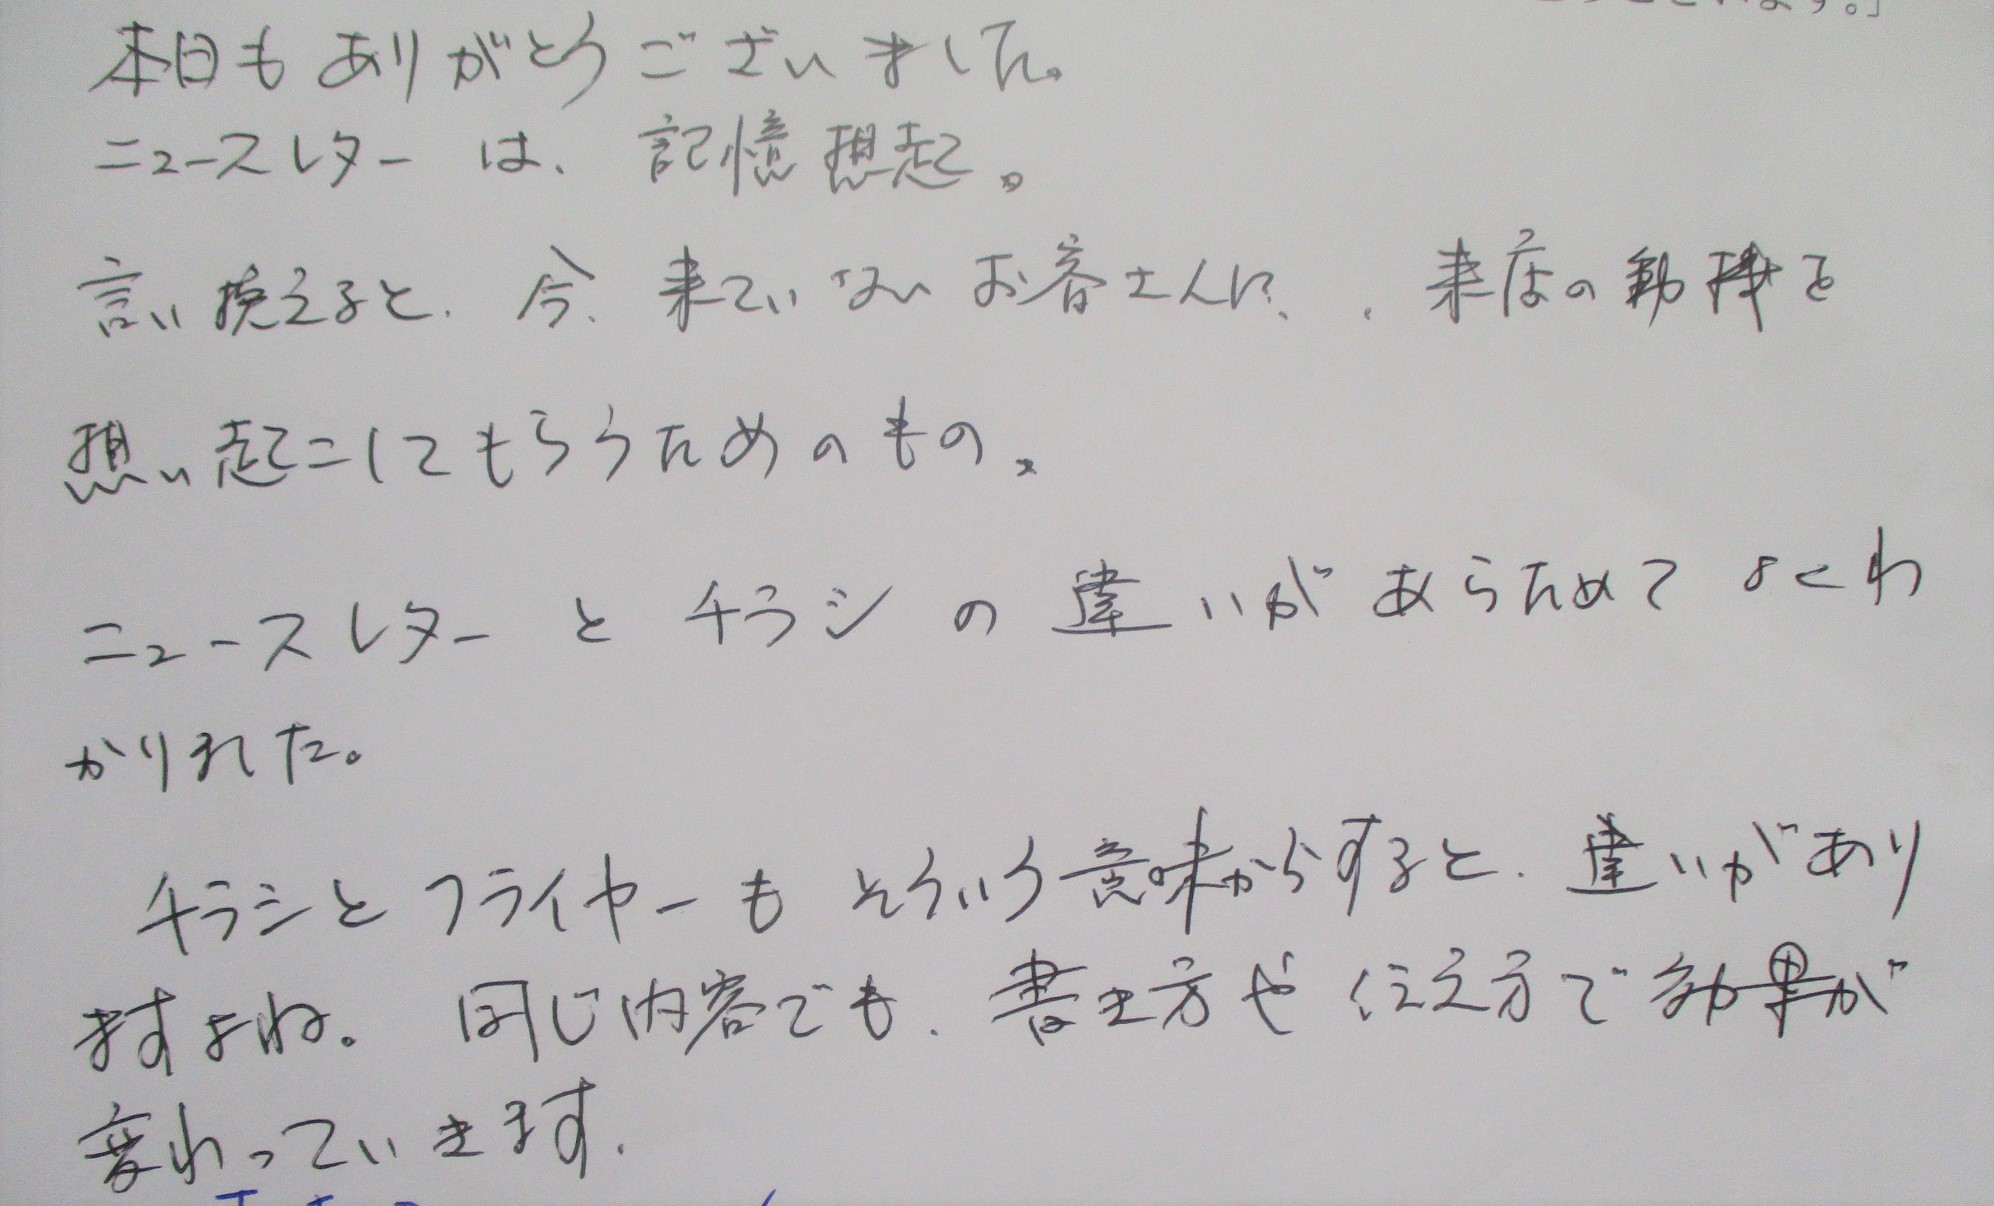 ざいます。」
本日もありがとうございました。
ニュースレターは、記憶想起。
言い換えると、今、来ていないお客さんに、、来店の動機を
想い起こしてもらうためのもの。
ニュースレターとチラシの違いがあらためてよくわ
かりました。
チラシとフライヤーもそういう意味からすると、違いがあり
ますよね。同じ内容でも、書き方や伝え方で効果が
変わっていきます。